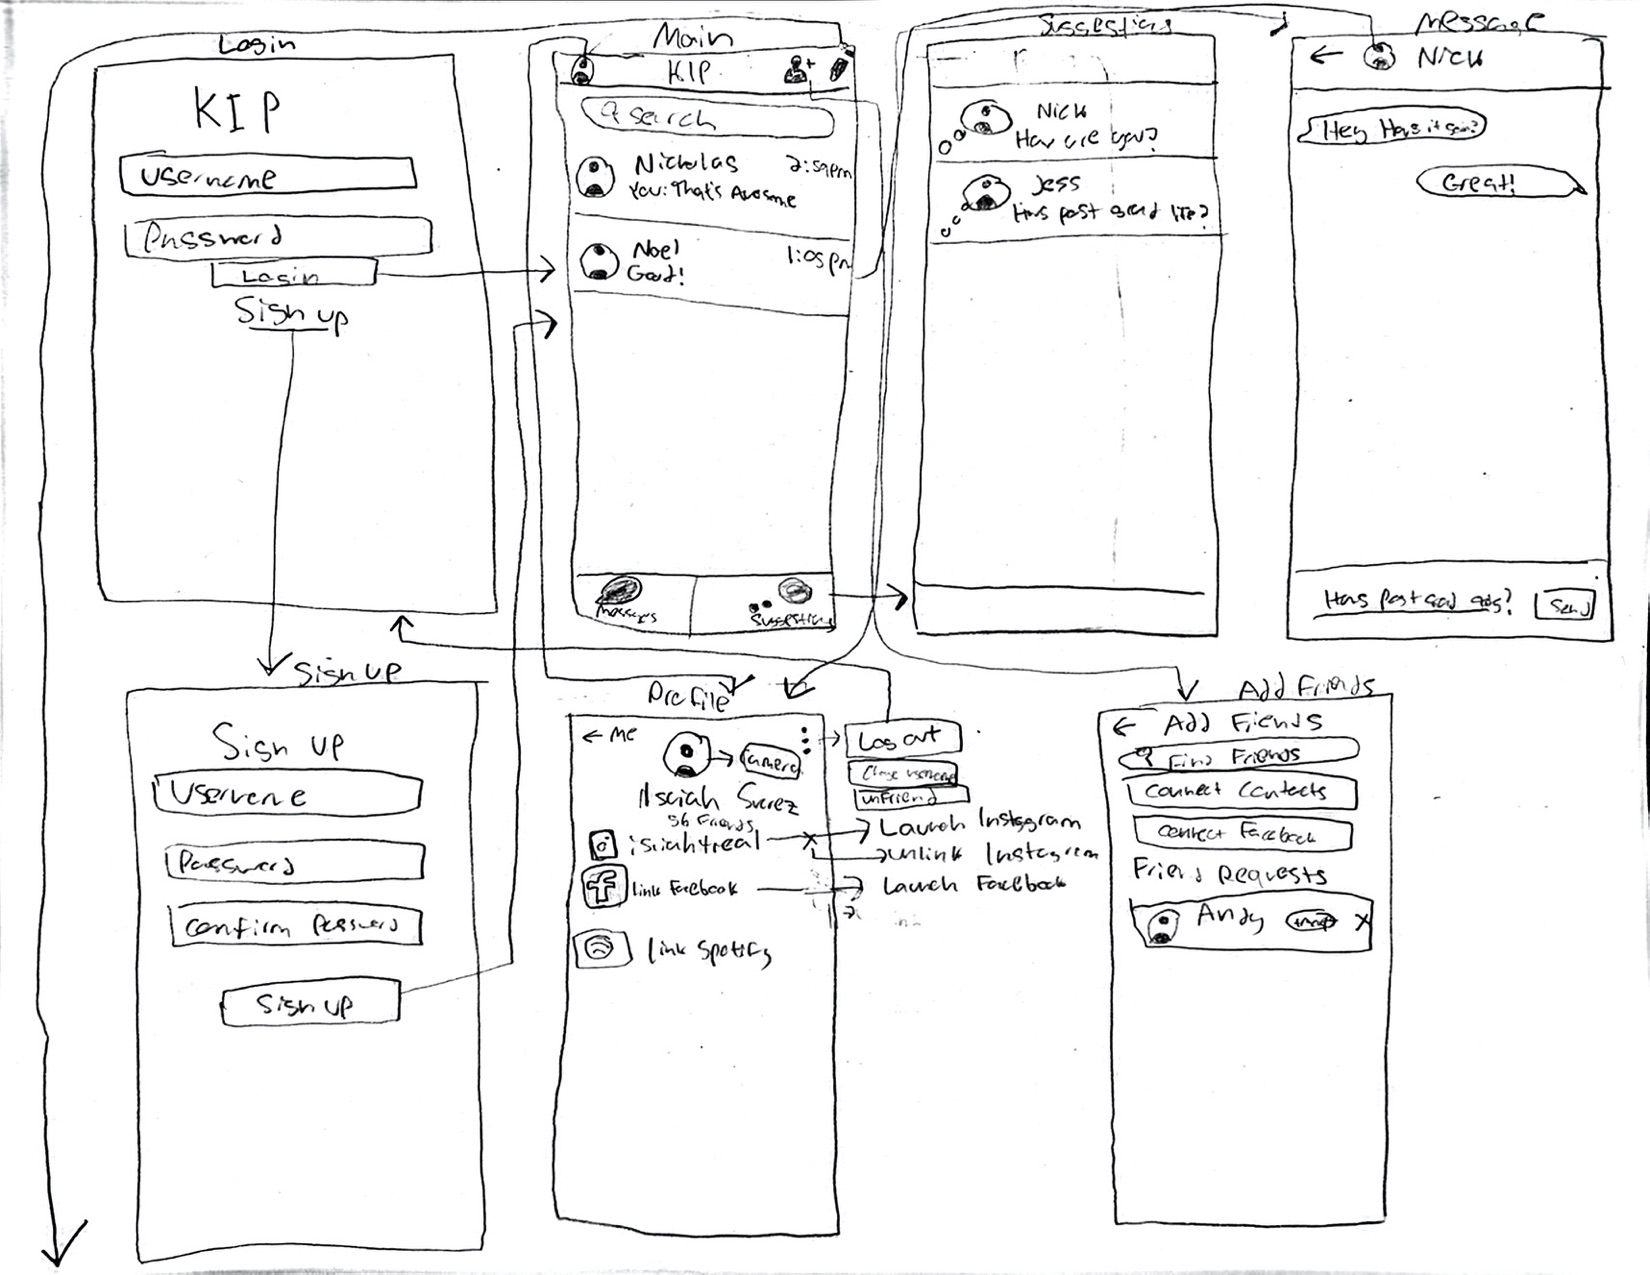 Login
KIP
Username
Password
Login
Sign up
Main
KIP
search
Nickolas 2:59pm
You: That's Awesome
Noel 1:05pm
Good!
Messages
Suggestions
Suggestions
Nick
How are you?
Jess
Hows post grad life?
Message
Nick
Hey Hows it goin?
Great!
Hows post grad
Send
Sign up
Sign up
Username
Password
Confirm Password
Sign up
Profile
← Me
Camera
Isaiah Suarez
56 Friends
isiahtreal
link Facebook
link Spotify
Log out
Change username
unfriend
Launch Instagram
unlink Instagram
Launch Facebook
Add Friends
← Add Friends
Find Friends
Connect Contacts
Connect Facebook
Friend Requests
Andy X